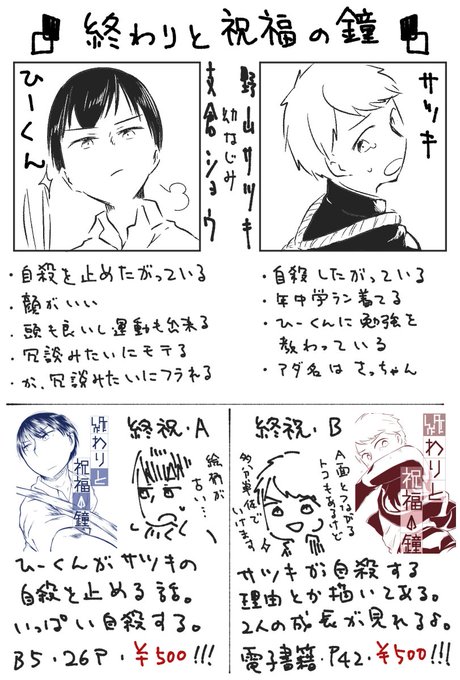 終わりと祝福の鐘
ひーくん
支倉ショウ
幼なじみ
野山サツキ
サツキ
・自殺を止めたがっている
・顔がいい
・頭も良いし運動も出来る
・冗談みたいにモテる
・が、冗談みたいにフラれる
・自殺したがっている
・年中学ラン着てる
・ひーくんに勉強を
教わっている
・アダ名はさっちゃん
終祝・A
終わりと
祝福の鐘
絵柄が
古い…
ひーくんがサツキの
自殺を止める話。
いっぱい自殺する。
B5・26P・¥500!!!
終祝・B
A面とつながる
トコもあるけど
多分単体で
いけます
終わりと
祝福の鐘
サツキが自殺する
理由とか描いてある。
2人の成長が見れるよ。
電子書籍・P42・¥500!!!